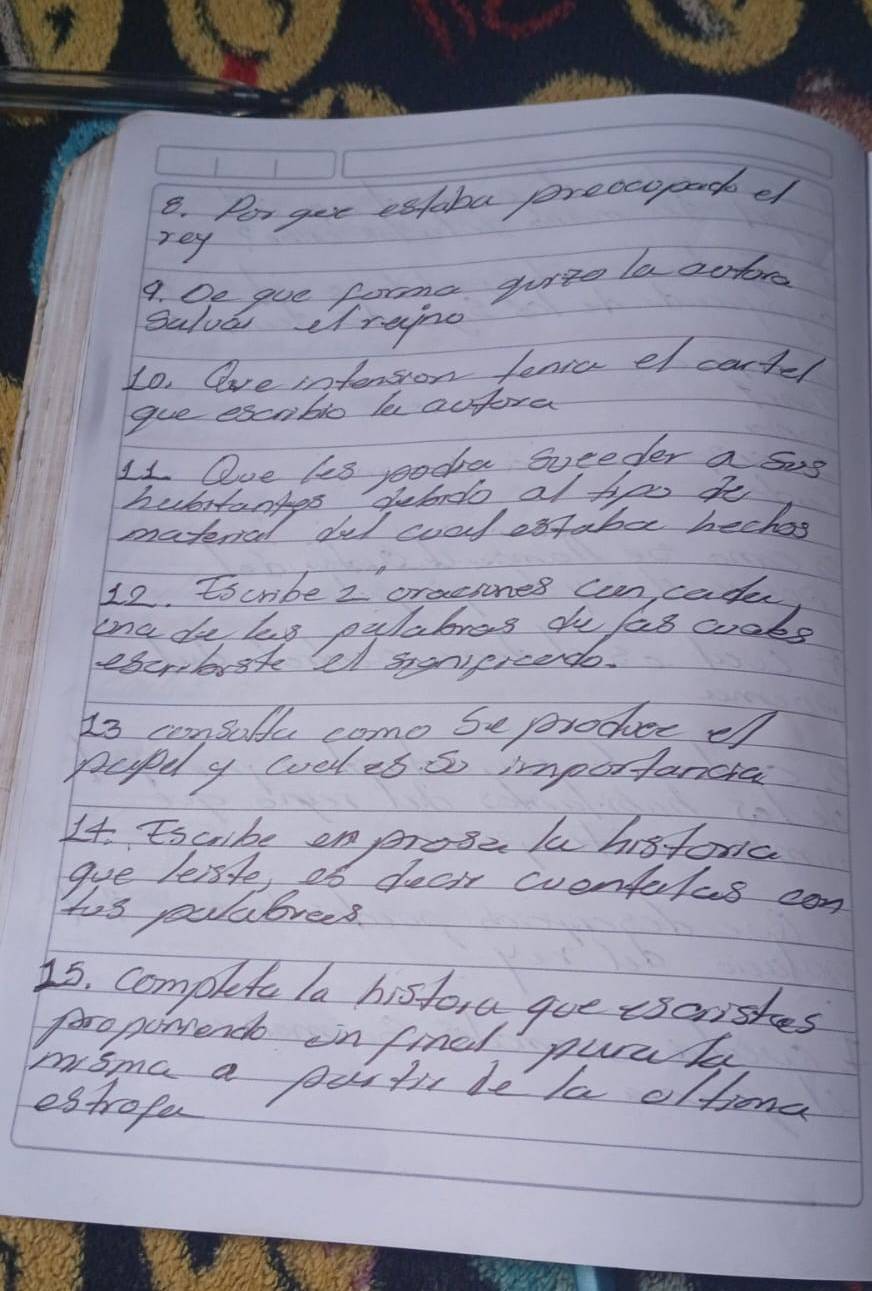 8. Por que estaba preocopado el
rey
9. De que forma quizo la autora
Salvar el reino
10. Que intension tenia el cartel
que escribio la autora
11. Que les podia suceder a Sus
habitantes debido al tipo de
material del cual estaba hechos
12. Escribe 2 oraciones con cada
una de las palabras de las cuales
escribiste el significado.
13 consulta como Se produce el
papel y cual es Su importancia
14. Escribe en prosa la historia
que leiste, es decir cuentalas con
tus palabras
15. completa la historia que escristes
proponiendo un final para la
misma a partir de la ultima
estrofa